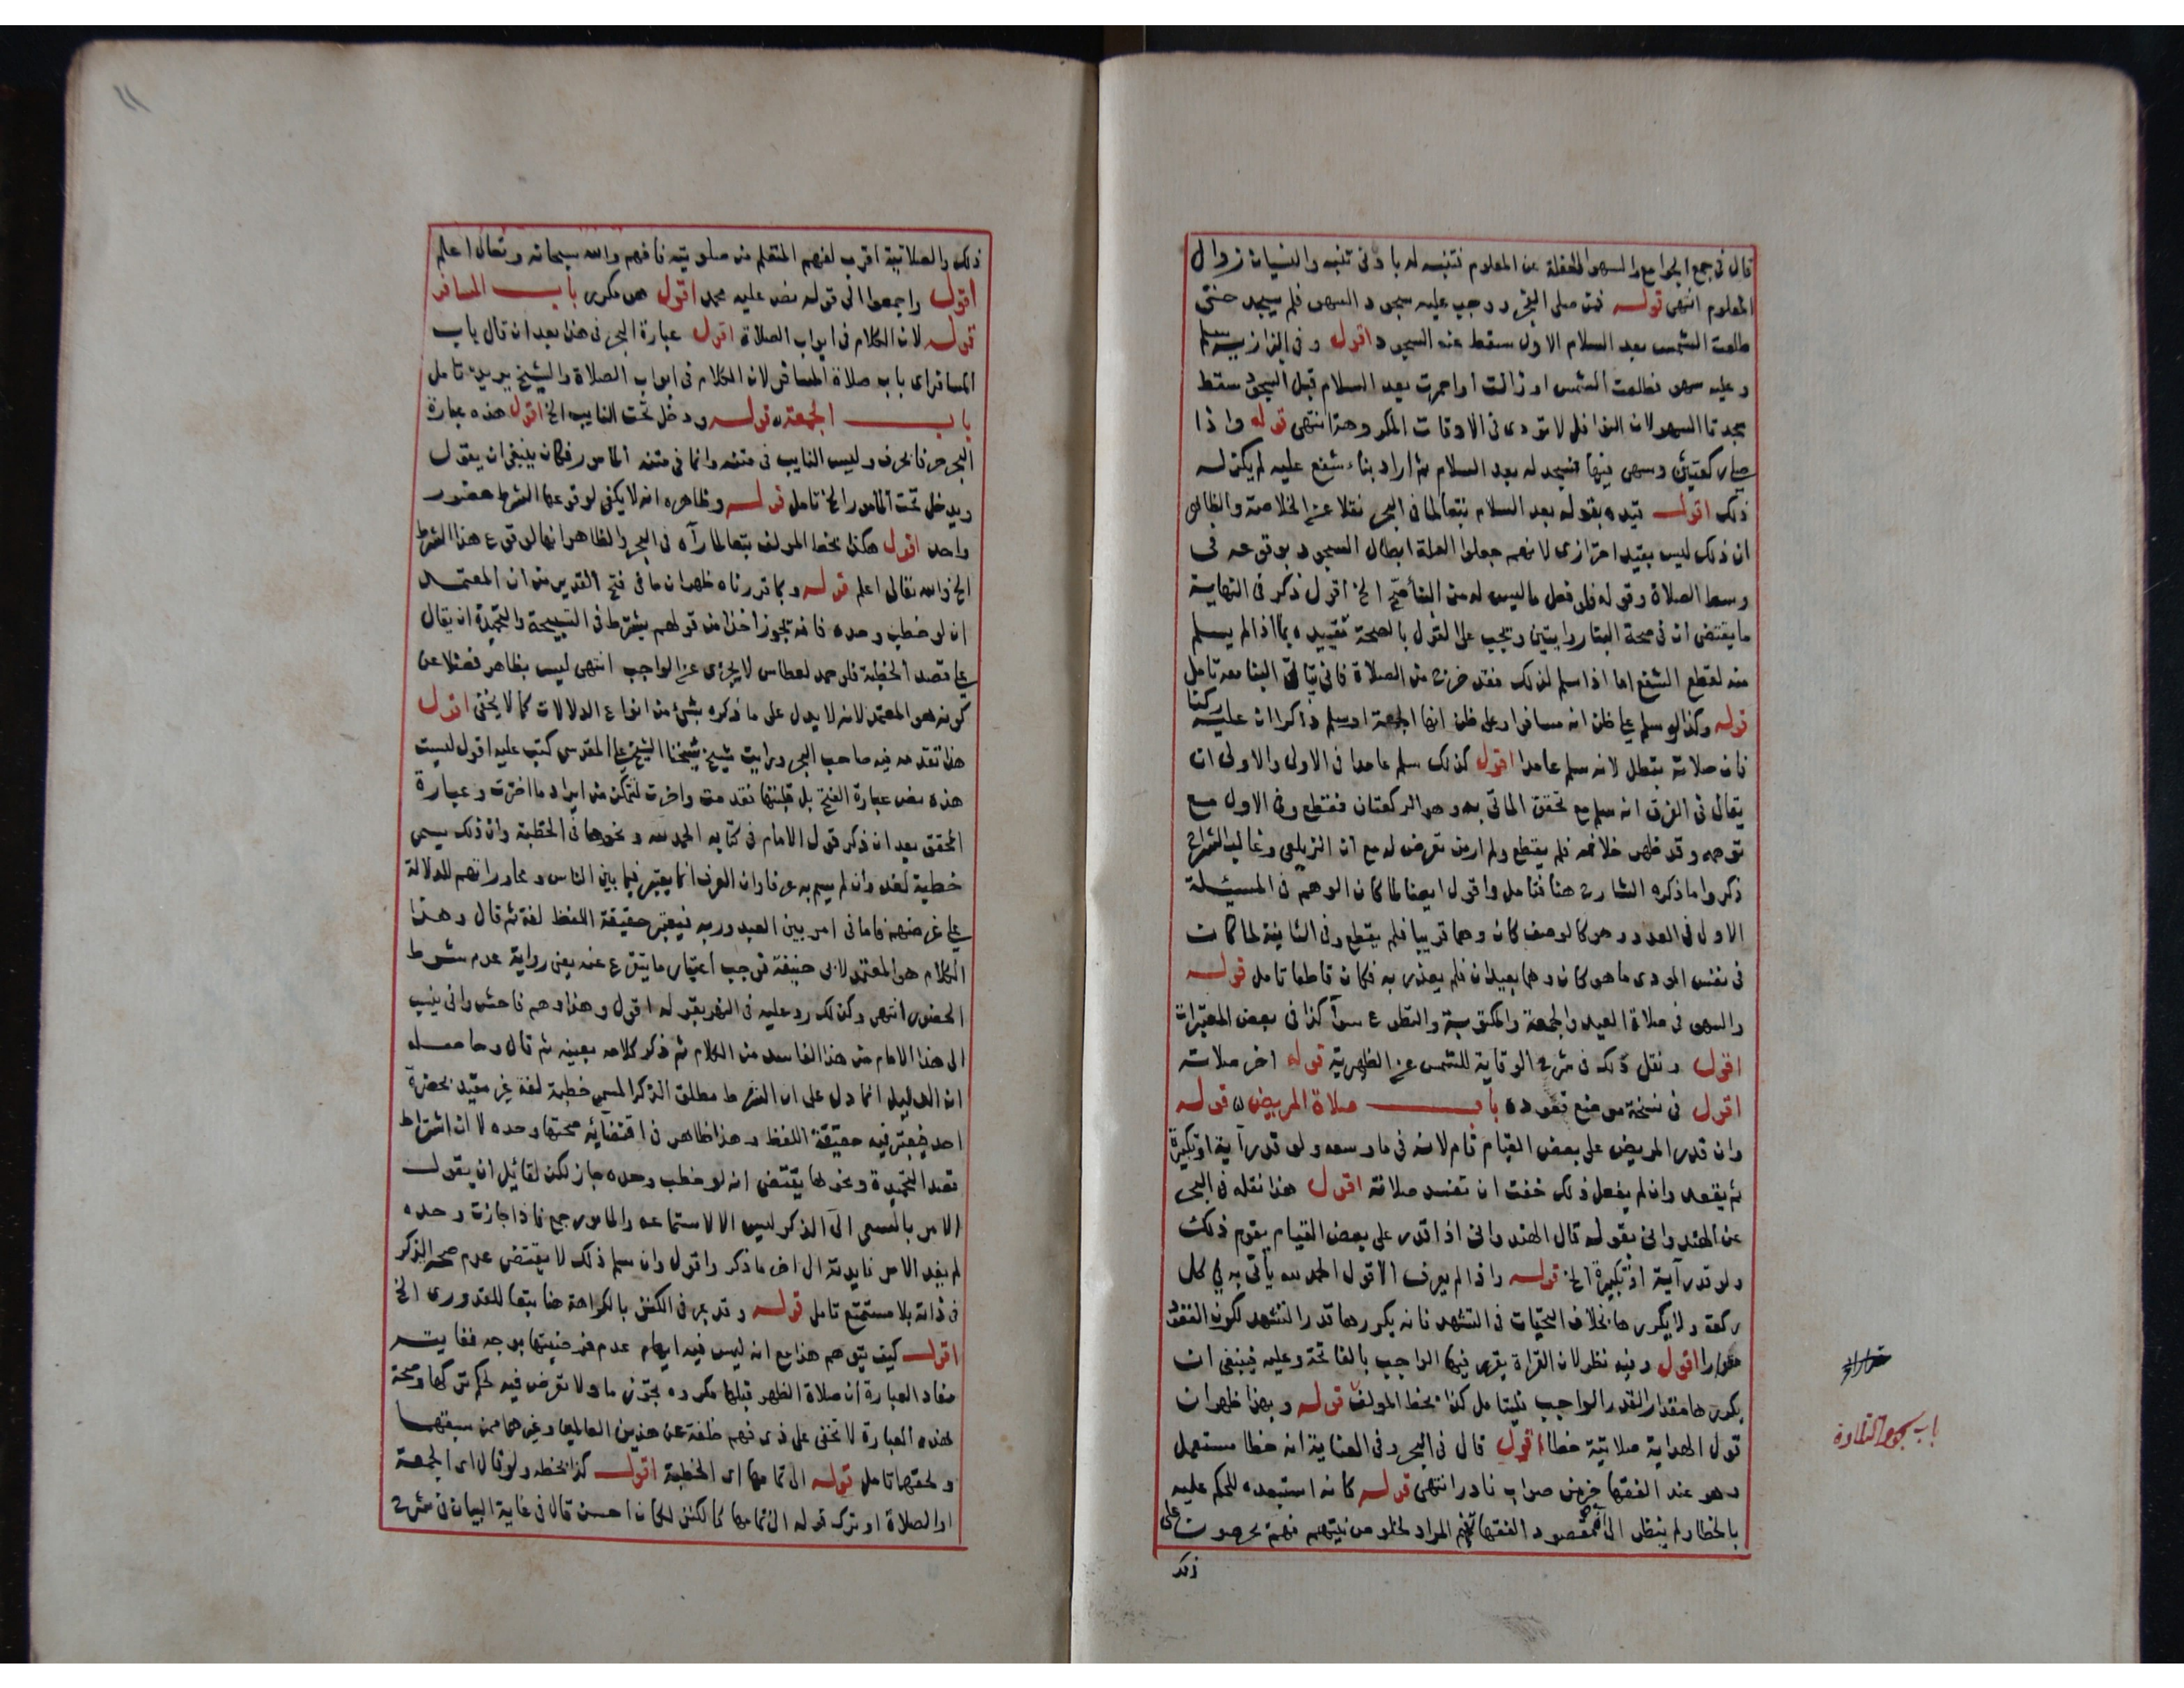 قال في جمع الجوامع والسهو الغفلة عن المعلوم فتنبه له بادنى تنبه والنسيان زوال
المعلوم انتهى قوله فمن صلى الفجر ووجب عليه سجود السهو فلم يسجد حتى
طلعت الشمس بعد السلام الاول سقط عنه السجود اقول وفي البزازية سلم
وعليه سهو فطلعت الشمس او زالت او احمرت بعد السلام قبل السجود سقط
سجدتا السهو لان النوافل لا تودى في الاوقات المكروهة انتهى قوله واذا
صلى ركعتين وسهى فيها فسجد له بعد السلام ثم اراد بناء شفع عليه لم يكن له
ذلك اقول قيده بقوله بعد السلام تبعا لما في البحر نقلا عن الخلاصة والظاهر
ان ذلك ليس بقيد احترازي لانهم جعلوا العلة ابطال السجود بوقوعه في
وسط الصلاة وقوله فلو فعل ما ليس له من البنا صح الخ اقول ذكر في النهاية
ما يقتضى ان في صحة البنا روايتين ويجب على القول بالصحة تقييده بما اذا لم يسلم
منه لقطع الشفع اما اذا سلم لذلك فقد خرج من الصلاة فانى يتاتى البنا معه تامل
قوله وكذا لو سلم على ظن انه مسافر او على ظن انها الجمعة او سلم ذاكرا ان عليه ركنا
فان صلاته تبطل لانه سلم عامدا اقول كذلك سلم عامدا في الاولى والاولى ان
يقال في الفرق انه سلم مع تحقق الماتى به وهو الركعتان فقطع وفي الاول مع
توهمه وقد ظهر خلافه فلم يقطع ولم ار من تعرض له مع ان الزيلعي وغالب الشراح
ذكروا ما ذكره الشارح هنا فتامل واقول ايضا لما كان الوهم في المسئلة
الاول في العدد وهو كالوصف كان وهما قريبا فلم يقطع وفي الثانية لما كان
في نفس المودى ما هو كان وهما بعيدا فلم يعذر به فكان قاطعا تامل قوله
والسهو في صلاة العيد والجمعة والمكتوبة والتطوع سوآ كذا في بعض المعتبرات
اقول ونقل ذلك في شرح الوقاية للشمس عن الظهيرية قوله اخر صلاته
اقول في نسخة موضع قعوده باب صلاة المريض قوله
وان قدر المريض على بعض القيام قام لانه في ما وسعه ولو قدر آية او تكبيرة
ثم يقعد وان لم يفعل ذلك خفت ان تفسد صلاته اقول هذا نقله في البحر
عن الهندواني بقوله قال الهندواني اذا قدر على بعض القيام يقوم ذلك
ولو قدر آية او تكبيرة الخ قوله واذا لم يعرف الا قول الحمد لله يأتي به في كل
ركعة ولا يكررها بخلاف التحيات في التشهد فانه يكررها قدر التشهد لكون القعود
مقدرا اقول وفيه نظر لان القراة يقرى فيها الواجب بالفاتحة وعليه فينبغى ان
يكررها مقدار القدر الواجب فليتامل كذا بخط المولف قوله وبهذا ظهر ان
قول الهداية صلاتية خطا اقول قال في البحر وفي العناية انه خطا مستعمل
وهو عند الفقها خير من صواب نادر انتهى قوله كانه استبعده للحكم عليه
بالخطا ولم ينظر الى ان مقصود الفقها تفهم المراد لخلوص نيتهم فهم يحرصون على
ذلك
باب سجود التلاوة
١١
ذلك والصلاتية اقرب لفهم المتعلم من صلوتية فافهم والله سبحانه وتعالى اعلم
اقول واجمعوا الى قوله نص عليه محمد اقول هو مكرر باب المسافر
قوله لان الكلام في ابواب الصلاة اقول عبارة البحر في هذا بعد ان قال باب
المسافر اى باب صلاة المسافر لان الكلام في ابواب الصلاة والشيخ يريد تامل
باب الجمعة قوله ودخل تحت النايب الخ اقول هذه عبارة
البحر حرفا بحرف وليس النايب في متنه وانما في متنه المامور فكان ينبغى ان يقول
ويدخل تحت المامور الخ تامل قوله وظاهره انه لا يكفى لوقوعها الشرط حضور
واحد اقول هكذا بخط المولف تبعا لما رآه في البحر والظاهر انها لوقوع هذا الشرط
الخ والله تعالى اعلم قوله وبما قررناه ظهر ان ما في فتح القدير من ان المعتمد
انه لو خطب وحده فانه يجوز أخذا من قولهم يشترط في التسبيحة والتحميدة ان يقال
على قصد الخطبة فلو حمد لعطاس لا يجزى عن الواجب انتهى ليس بظاهر فضلا عن
كونه هو المعتمد لانه لا يدل على ما ذكره بشئ من انواع الدلالات كما لا يخفى اقول
هذا تقدمه فيه صاحب البحر ورايت شيخ شيخنا الشيخ على المقدسى كتب عليه اقول ليست
هذه نص عبارة الفتح بل قلبتها فقدمت واخرت لتمكن من ايراد ما اخرت وعبارة
المحقق بعد ان ذكر قول الامام في كتابه الحمد لله ونحوها في الخطبة وان ذلك يسمى
خطبة لغة وان لم يسم به عرفا وان العرف انما يعتبر فيما بين الناس ومحاوراتهم للدلالة
على غرضهم فاما في امر بين العبد وربه فيعتبر حقيقة اللفظ لغة ثم قال وهذا
الكلام هو المعتمد لابى حنيفة فوجب اعتبار ما يتفرع عنه يعنى رواية عدم شرط
الحضور انتهى وكذلك رد عليه في النهر بقوله اقول وهذا وهم فاحش وانى ينسب
الى هذا الامام من هذا الفاسد من الكلام ثم ذكر كلامه بعينه ثم قال وحاصله
ان الدليل انما دل على ان الشرط مطلق الذكر المسمى خطبة لغة غير مقيد بحضرة
احد فيعتبر فيه حقيقة اللفظ وهذا ظاهر في اقتضائه صحتها وحده لا ان اشتراط
قصد التحميدة ونحوها يقتضى انه لو خطب وحده جاز لكن لقائل ان يقول
الامر بالسعى الى الذكر ليس الا لاستماعه والمامور جمع فاذا جازت وحده
لم يفد الامر فايدته الى اخر ما ذكر واقول وان سلم ذلك لا يقتضى عدم صحة الذكر
في ذاته بلا مستمع تامل قوله وقد عبر في الكنز بالكراهة هنا تبعا للقدورى الخ
اقول كيف يتوهم هذا مع انه ليس فيه ايهام عدم فرضيتها بوجه فغايته
مفاد العبارة ان صلاة الظهر قبلها مكروهة تحريما ولا تعرض فيه لحكم تركها وصحة
هذه العبارة لا تخفى على ذى فهم خلفة عن هذين العالمين وغيرهما ممن سبقهما
ولحقهما تامل قوله الى تمامها اى الخطبة اقول كذا بخطه ولو قال اى الجمعة
او الصلاة او ترك قوله الى تمامها كما لكنز لكان احسن قال في غاية البيان في شرح